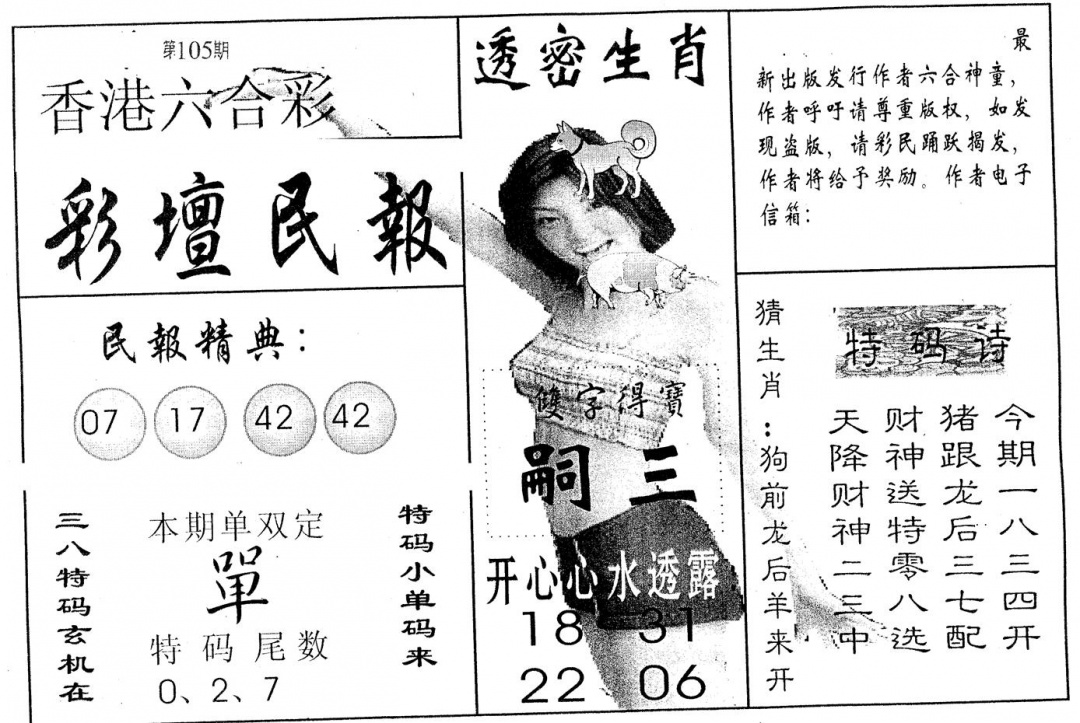 第105期
香港六合彩
彩壇民報
民報精典：
07 17 42 42
三八特码玄机在
本期单双定
單
特码尾数
0、2、7
特码小单码来
透密生肖
雙字得寶
嗣 三
开心心水透露
18 31
22 06
最
新出版发行作者六合神童，
作者呼吁请尊重版权，如发
现盗版，请彩民踊跃揭发，
作者将给予奖励。作者电子
信箱：
猜生肖：狗前龙后羊来开
特码诗
今期一八三四开
猪跟龙后三七配
财神送特零八选
天降财神二三中